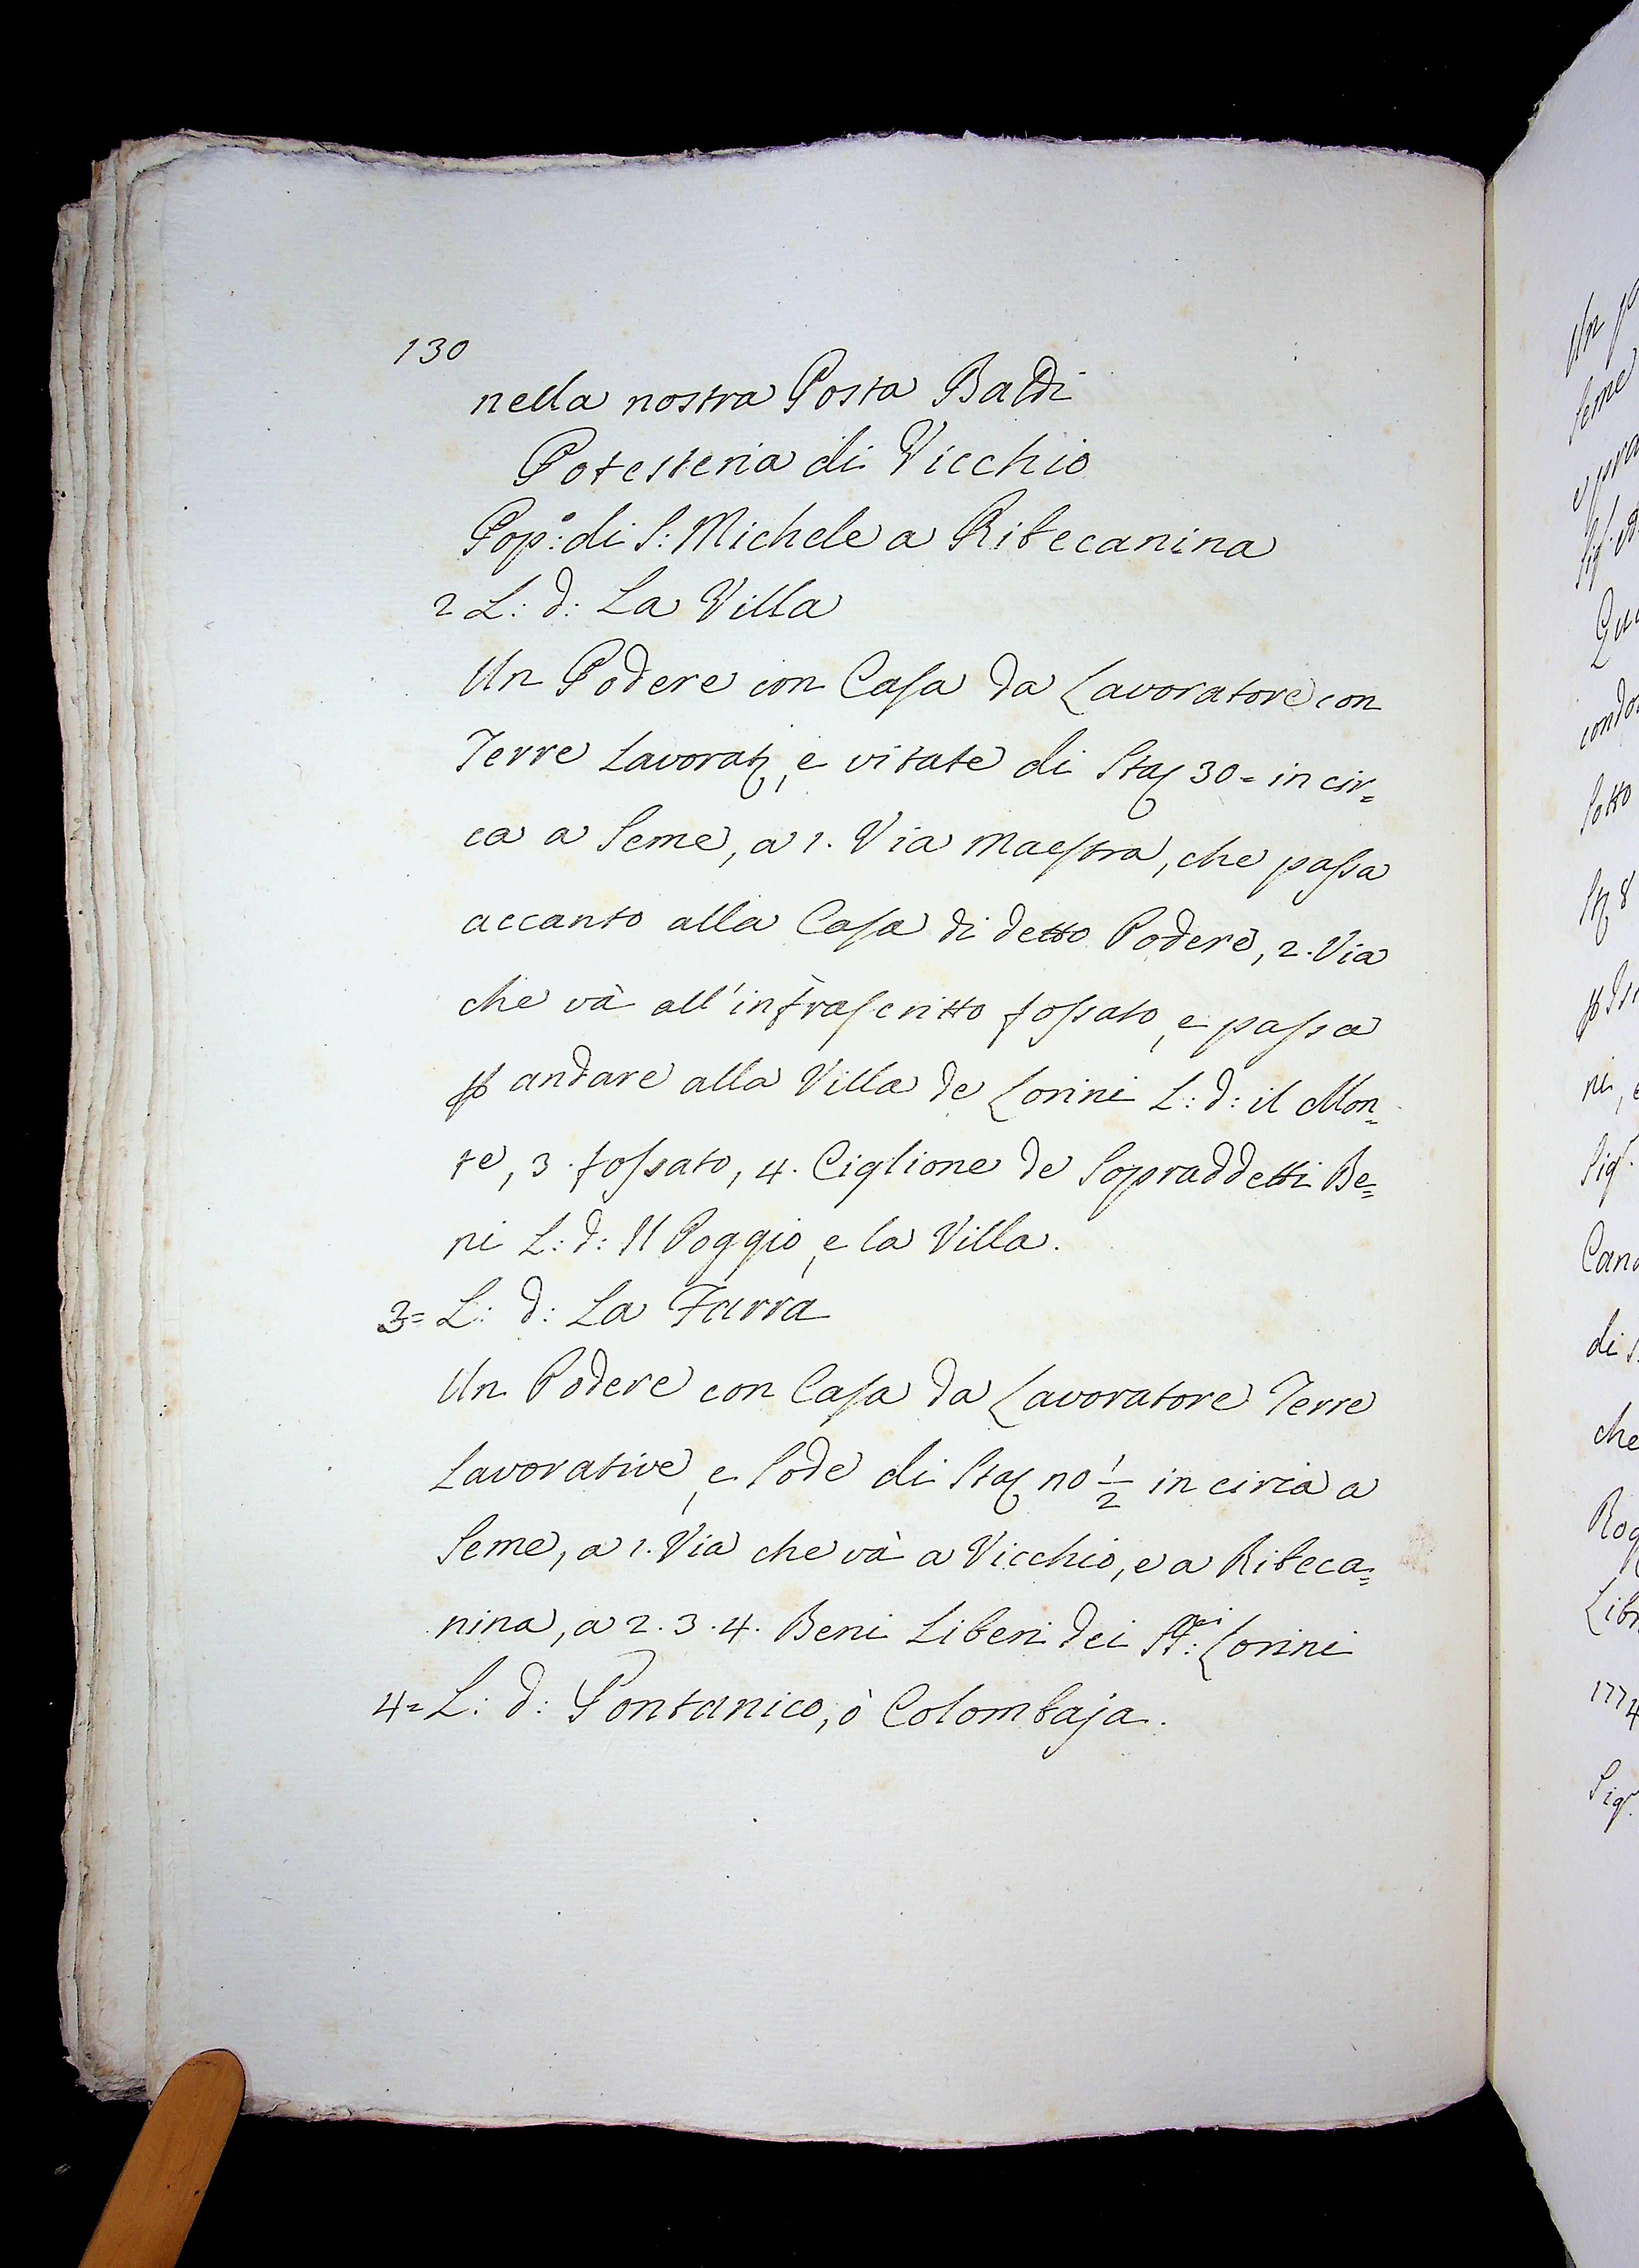 130
nella nostra Posta Baldi
Potesteria di Vicchio
Pop:° di S: Michele a Ribecanina
2 L: d: La Villa
Un Podere con Casa da Lavoratore con
Terre Lavorat, e vitate di Sta 30= in cir=
ca a Seme, a 1. Via Maestra, che passa
accanto alla Casa di detto Podere, 2. Via
che và all'infrascritto fossato, e passa
andare alla Villa de Lorini L: d: il Mon=
te, 3. fossato, 4. Ciglione de Sopraddetti Be=
ni L: d: Il Poggio, e la Villa.
3= L: d: La Farra
Un Podere con Casa da Lavoratore Terre
Lavorative, e Sode di Sta 10 1/2 in circa a
Seme, a 1. Via che và a Vicchio, e a Ribeca=
nina, a 2. 3. 4. Beni Liberi dei SS:ri Lorini
4= L: d: Pontanico, ò Colombaja.
Un
Seme
condo
Sotto
ni,
Sig.
di
che
1774
Sig.